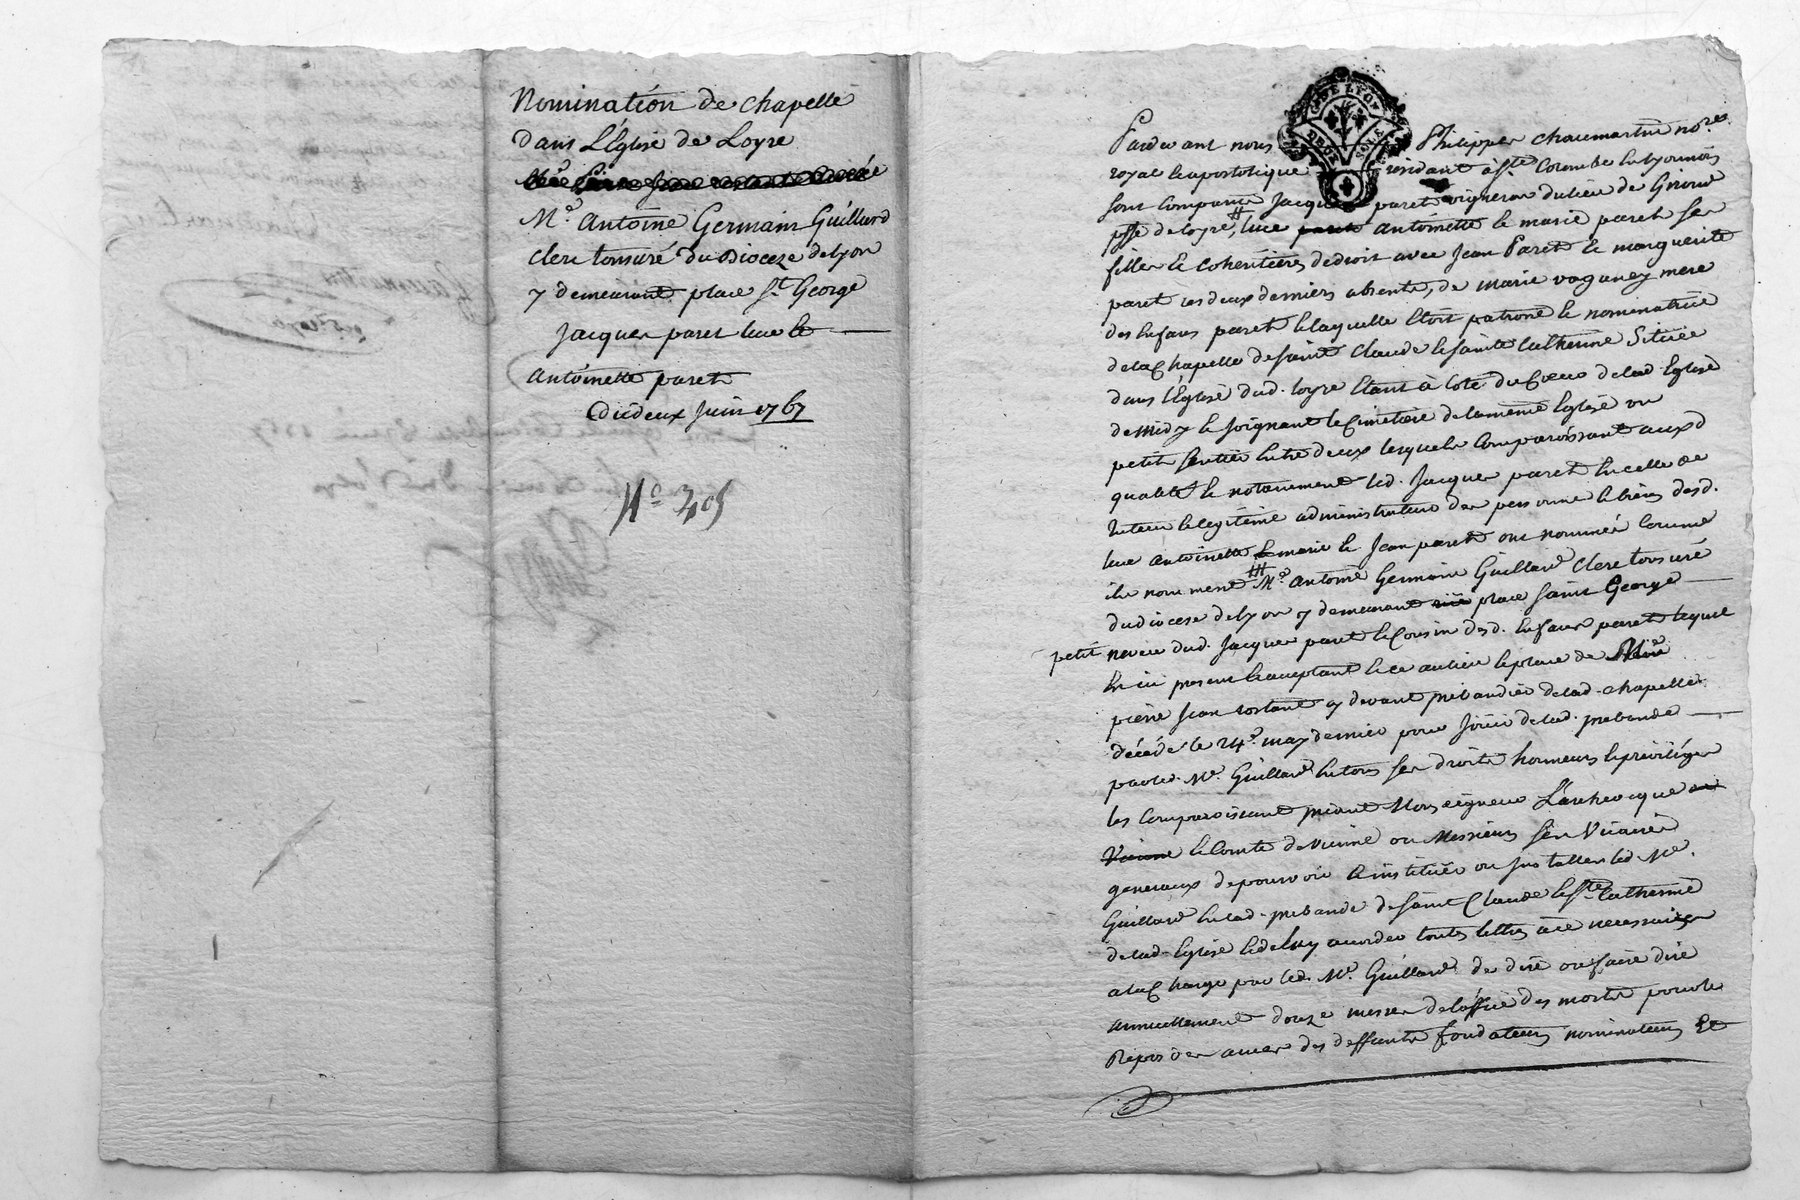 Nomination de chapelle
dans L'Eglise de Loyre
Mre Antoine Germain Guillard
clerc tonsuré du Dioceze de Lyon
y demeurant place St. George
Jacques paret luce et
antoinette paret
Du deux Juin 1767
No 305
G. DE LYON
DEUX SOLS
Pardevant nous Philippe chaumartin nore
royal et apostolique residant à Ste Colombe en lyonnois
sont comparus Jacques paret vigneron du lieu de Giron
psse de loyre, luce antoinette et marie paret ses
filles et coheritieres de droit avec Jean Paret et marguerite
paret ces deux derniers absents, de marie vaganey mere
des enfans paret laquelle etoit patrone et nominatrice
de la Chapelle de saint Claude et sainte Catherine Située
dans l'Eglise dud. loyre etant à coté du Cœur de lad. Eglise
de midy et joignant le Cimetiere de la meme Eglise un
petit sentier entre deux lesquels comparoissant auxd
qualités et notamment led. Jacques paret en celle de
tuteur et legitime administrateur des personnes et biens desd.
luce antoinette et marie et Jean paret ont nommé comme
ils nomment Mre antoine Germain Guillard clerc tonsuré
du diocese de lyon y demeurant place saint George
petit neveu dud. Jacques paret et Cousin desd. enfans paret lequel
ici present et acceptant et ce au lieu et place de Mre
pierre Jean rostant cy devant prebandier de lad. chapelle
décédé le 24e. may dernier pour jouir de lad. prebande
par led. Mre. Guillard en tous ses droits honneurs et privilèges
les comparoissants priant Monseigneur L'archevêque
Vienne et Comte de Vienne ou Messieurs ses Vicaires
generaux de pouvoir instituer ou installer led. Mre.
Guillard en lad. prebande de saint Claude et Ste Catherine
de lad. Eglise et de luy accorder toutes lettres a ce necessaires
a la Charge par led. Mre. Guillard de dire ou faire dire
annuellement douze messes de l'office des morts pour le
Repos des ames des deffunts fondateurs nominateurs Et